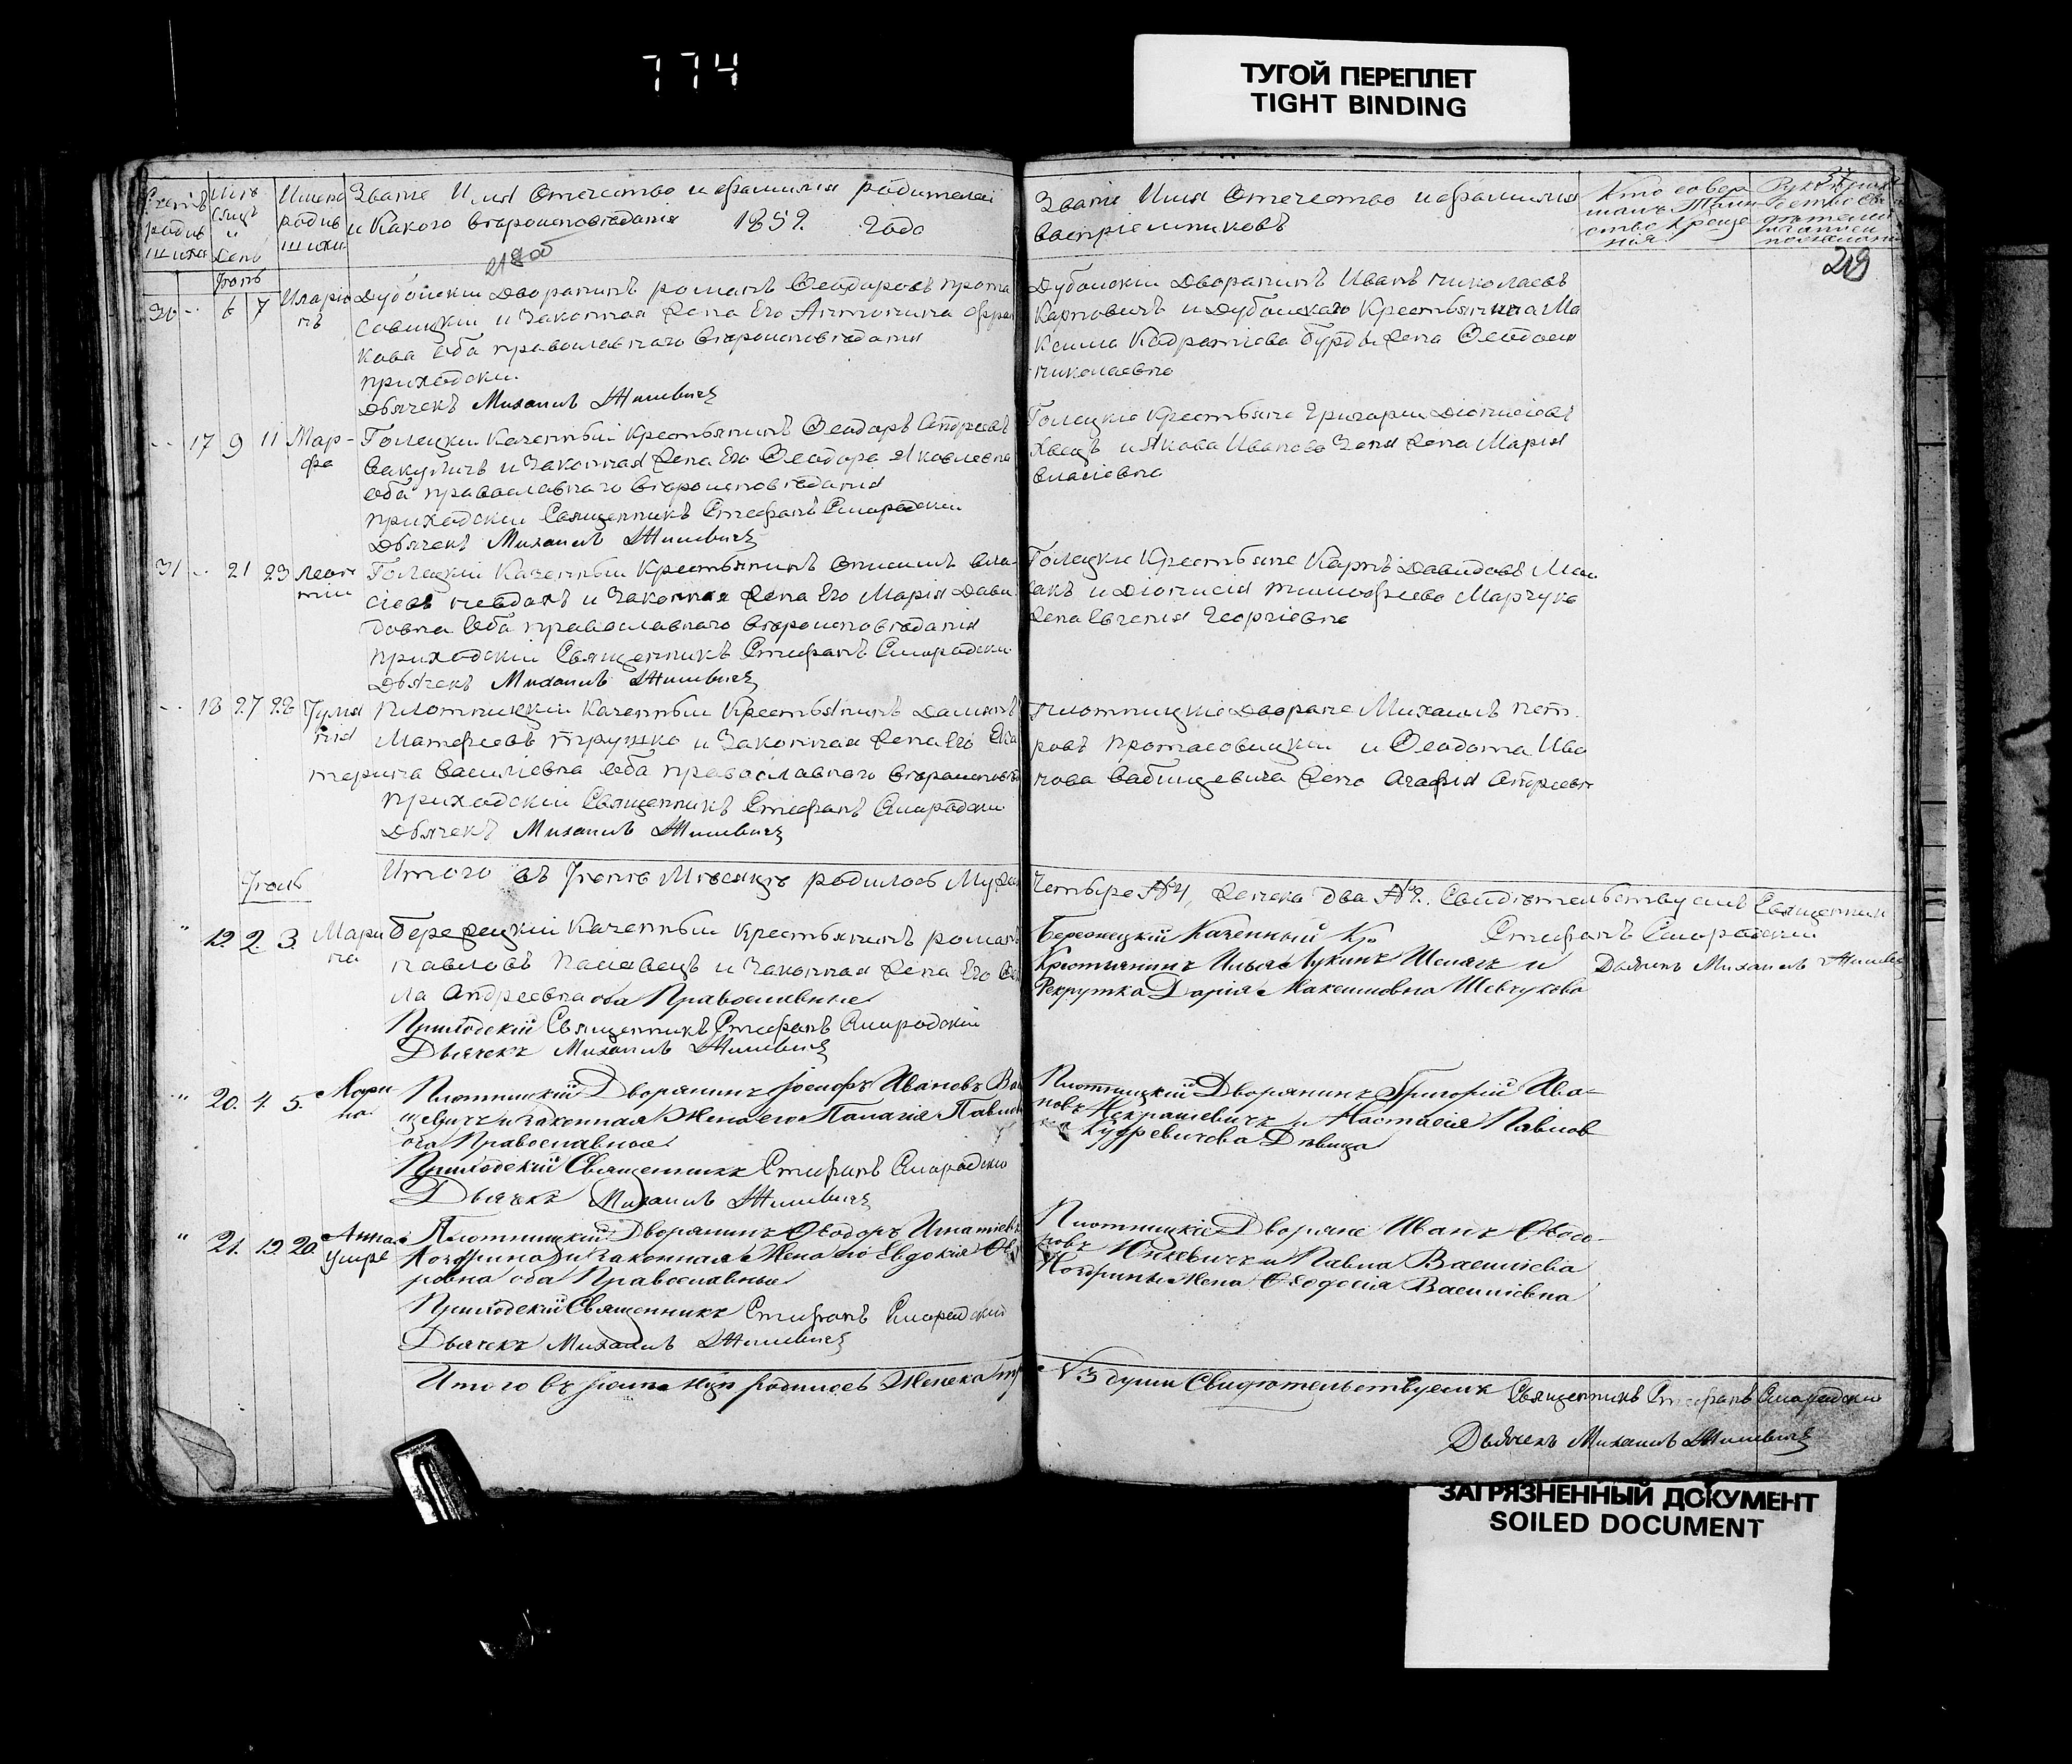 774
ТУГОЙ ПЕРЕПЛЕТ
TIGHT BINDING
Имена
родив
шихся
Званiе Имя Отечество и фамилiя родителей
и Какого вѣроисповѣданiя 1859. Года
Званiе Имя Отечество и фамилiя
воспрiемниковъ
Кто совер
шалъ Таин
ство Креще
нiя
37
219
Iюнь
30 6 7 Иларiо
нъ
Дубойскiй Дворянинъ романъ Ѳеодоровъ прота
совицкiй и Законная Жена Его Антонина
кова оба православнаго вѣроисповѣданiя
приходскiй
Дьячекъ Михаилъ Жилевичъ
Дубойскiй Дворянинъ Иванъ николаевъ
Карповичъ и Дубойскаго Крестьянина Ма
ксима Бурды Жена Ѳеодосiя
николаевна
17 9 11 Мар-
фа
Голецкiй Каченный Крестьянинъ Ѳеодоръ Андреевъ
Вакуличъ и Законная Жена Его Ѳеодора Яковлевна
оба православнаго вѣроисповѣданiя
приходскiй Священникъ Стефанъ Смородскiй
Дьячекъ Михаилъ Жилевичъ
Голецкiе Крестьяне Григорiй Дiонисiевъ
и Якова Иванова Жена Марiя
власiевна
31 21 23 Леон
тiй
Голецкiй Каченный Крестьянинъ Онисимъ вла-
сiевъ и Законная Жена Его Марiя Дави
довна оба православнаго вѣроисповѣданiя
приходскiй Священникъ Стефанъ Смородскiй
Дьячекъ Михаилъ Жилевичъ
Голецкiе Крестьяне Карпъ Давидовъ
и Дiонисiя тимофеева Марчука
Жена Евгенiя Георгiевна
18 27 28 Iулiя
Плотницкiй Каченный Крестьянинъ Дамiанъ
Матфеевъ трушко и Законная Жена Его Ека
терина Василiевна оба православнаго вѣроисповѣ
приходскiй Священникъ Стефанъ Смородскiй
Дьячекъ Михаилъ Жилевичъ
плотницкiе Дворяне Михаилъ пет
ровъ протасовицкiй и Ѳеодота Ива
нова Вабищевича Жена Агафiя Андреевн
Итого въ Iюнь Мѣсяцъ родилось Муже
Четыре №4, Женска Два №2. Свидѣтельствуемъ Священник
Стефанъ Смородскiй
Дьячекъ Михаилъ Жилеви
Iюль
12 2. 3. Мари
на
Бережецкiй Каченный Крестьянинъ романъ
павловъ и Законная Жена Его
ла Андреевна оба Православные
Приходскiй Священникъ Стефанъ Смородскiй
Дьячекъ Михаилъ Жилевичъ
Бережецкiй Каченный Кр
Крестьянинъ Илья Лукинъ и
Рекрутка Дарiя Максимовна Шевчукова
20. 4. 5. Мари
на
Плотницкiй Дворянинъ Iосифъ Ивановъ Ва
щевичъ и законная Жена его Палагiя Павлов
оба Православные
Приходскiй Священникъ Стефанъ Смородскiй
Дьячекъ Михаилъ Жилевичъ
Плотницкiй Дворянинъ Григорiй Ива-
новъ Некрашевичъ и Настасiя Павлов-
на Куфревичова Дѣвица
21. 19. 20. Анна
Умре
Плотницкiй Дворянинъ Ѳеодоръ Игнатiевъ
Ноздрина и законная Жена его Евдокiя
ровна оба Православные
Приходскiй Священникъ Стефанъ Смородскiй
Дьячекъ Михаилъ Жилевичъ
Плотницкiе Дворяне Иванъ Ѳеодо-
ровъ и Павла Василiева
Ноздрины Жена Ѳеодосiя Василiевна
Итого въ Iюлѣ родилось Женска
№3 души Свидѣтельствуемъ Священникъ Стефанъ Смородскiй
Дьячекъ Михаилъ Жилевичъ
ЗАГРЯЗНЕННЫЙ ДОКУМЕНТ
SOILED DOCUMENT